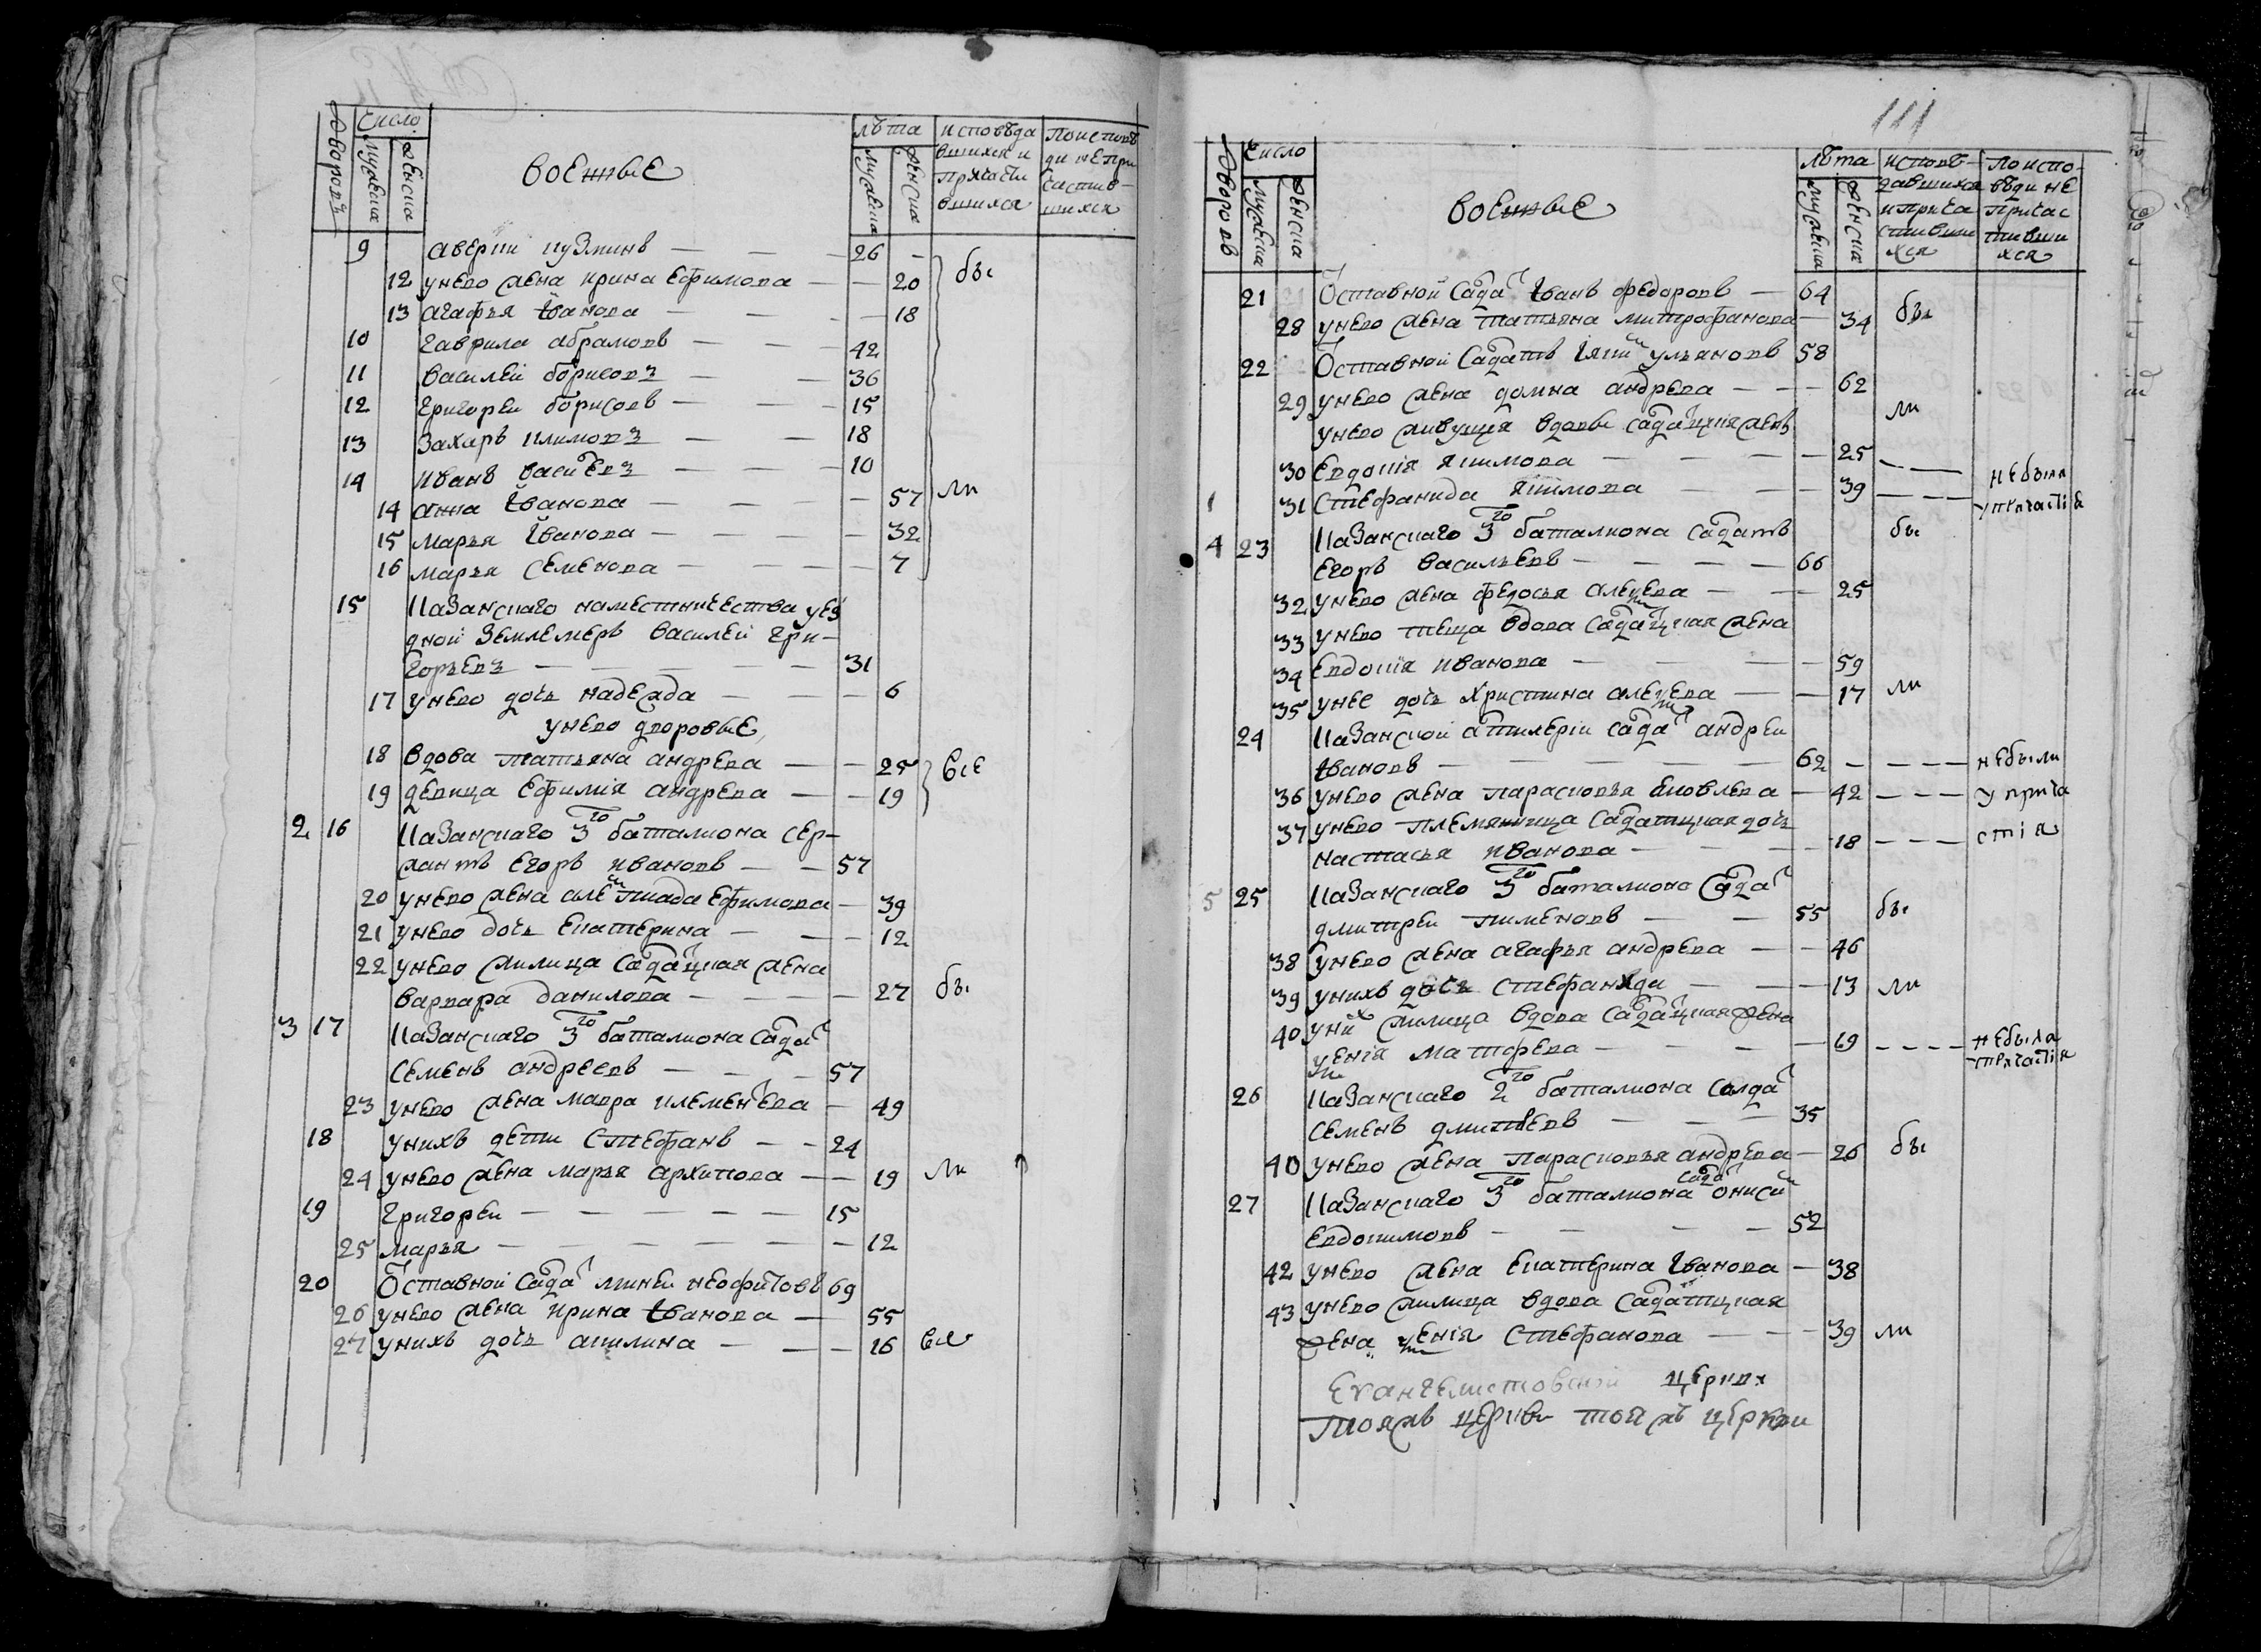 дворовъ
Число
мужеска
женска
военные
лѣта
мужеска
женска
исповѣда
вшихся и
причасти
вшихся
По исповѣ
ди не при
частив-
шихся
9 аверки кузминъ — — 26 —
12 унево жена ирина ефимова — — 20 бы
13 агафья Iванова — — — 18
10 гаврила абрамовъ — — — 42
11 василей борисовъ — — 36
12 григореи борисовъ — — — 15
13 захаръ климовъ — — 18
14 иванъ василевъ — — — 10
14 анна Iванова — — — 57 ли
15 марья Iванова — — — — 32
16 марья семенова — — — — 7
15 казанскаго наместничества уез
дной землемеръ василей гри-
горьевъ — — — — — 31
17 унево дочь надежда — — — 6
унево дворовые
18 вдова татьяна андрева — — 25 все
19 девица ефимия андрева — — 19
2 16 казанскаго 3го баталиона сер-
жантъ егоръ ивановъ — — 57
20 унево жена алексанада ефимова — 39
21 унево дочь екатерина — — — 12
22 унево жилица садацкая жена
варвара данилова — — — — 27 бы
3 17 казанскаго 3го баталиона садат
семенъ андреевъ — — — 57
23 унево жена мавра клементева — 49
18 унихъ дети стефанъ — — 24
24 унево жена марья архипова — — 19 ли
19 григореи — — — — — — 15
25 марья — — — — — — — 12
20 Отставной садат минеи неофитовъ 69
26 унево жена ирина Iванова — 55
27 унихъ дочь акилина — — — 16 все
111
дворовъ
Число
мужеска
женска
военные
лѣта
мужеска
женска
исповѣ-
давшихся
и прича
стивши
хся
По испо-
вѣди не
причас
тивши
хся
21 Отставной садат Iванъ федоровъ — 64
28 унево жена татьяна митрофанова — 34 бы
22 Отставной садатъ ульяновъ 58
29 унево жена домна андрева — — — 62
унево живущия вдовы садацкия жены ли
30 евдокия якимова — — — — 25 — — небыли
1 31 стефанида якимова — — — 39 — — — упричастия
4 23 казанскаго 3го баталиона садатъ бы
егоръ васильевъ — — — — 66
32 унево жена федосья алексева — — 25
33 унево теща вдова садацкая жена
34 евдокия иванова — — — — 59
35 унее дочь христина алексева — — 17 ли
24 казанской атилерiи садат андреи
Iвановъ — — — — — 62 — — — небыли
36 унево жена парасковья яковлева — 42 — — — у прича
37 унево племянница садатцкая дочь
настасья иванова — — — — 18 — — — стiя
5 25 казанскаго 3го баталиона садат
дмитреи пименовъ — — 55 бы
38 унево жена агафья андрева — — 46
39 унихъ дочь стефанида — — — 13 ли
40 уних жилица вдова садацкая жена
ксения матфева — — — — 19 — — — — небыла
причастiя
26 казанскаго 2го баталиона салдат
семенъ дмитревъ — — — 35
40 унево жена парасковья андрева — 26 бы
27 казанскаго 3го баталиона садат онисим
евдокимовъ — — — — 52
42 унево жена екатерина Iванова — 38
43 унево жилица вдова садатцкая
жена ксенiя стефанова — — — 39 ли
Евангелистовской церкви
тояжъ церкви тойжъ церкви